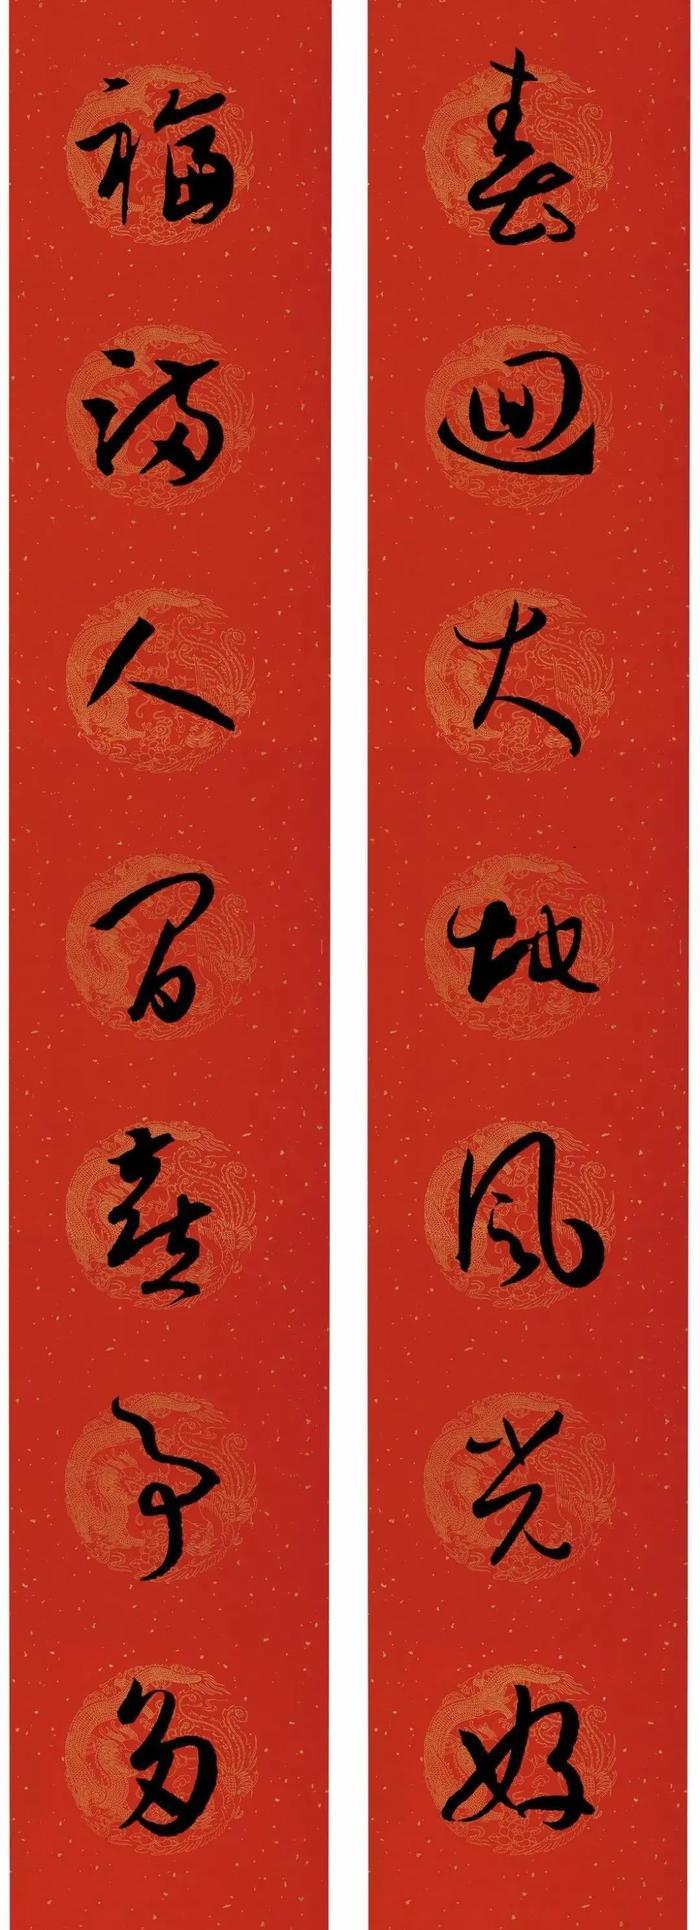 春回大地风光好
福满人间喜事多